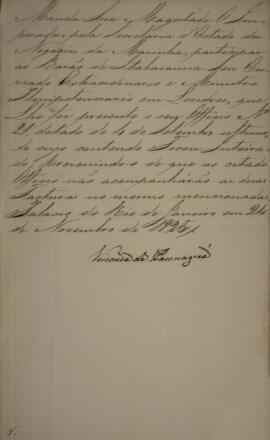 Manda Sua Magestade O Im-
perador, pela Secretaria d'Estado dos
Negocios da Marinha, participar
ao Barão de Itabaianna Seu En-
viado Extraordinario e Ministro
Plenipotenciario em Londres, que
Lhe foi presente o seu Officio Nº
21, datado de 6 de Setembro ultimo,
de cujo contendo ficou Inteira-
do, Prevenindo-o de que ao citado
Officio não acompanharão as duas
Facturas no mesmo mencionadas.
Palacio do Rio de Janeiro em 24
de Novembro de 1825
Visconde de Paranaguá